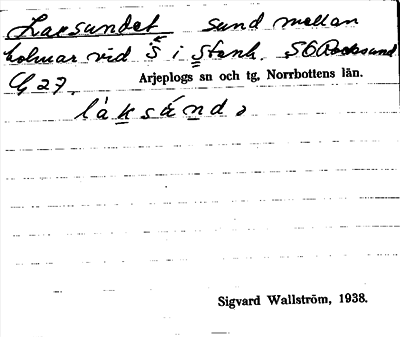 Laxsundet sund mellan
holmar vid S i Storh. SO Rocksund
Arjeplogs sn och tg, Norrbottens län.
27.
làksánd
Sigvard Wallström, 1938.